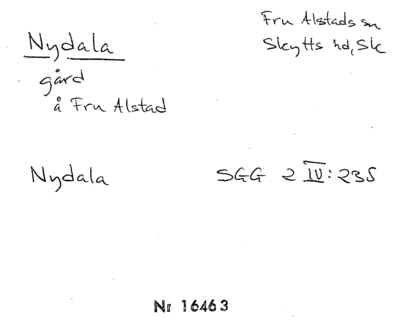 Nydala
Fru Alstads sn
Skytts hd, Sk
gård
å Fru Alstad
Nydala SGG 2 IV: 235
Nr 16463